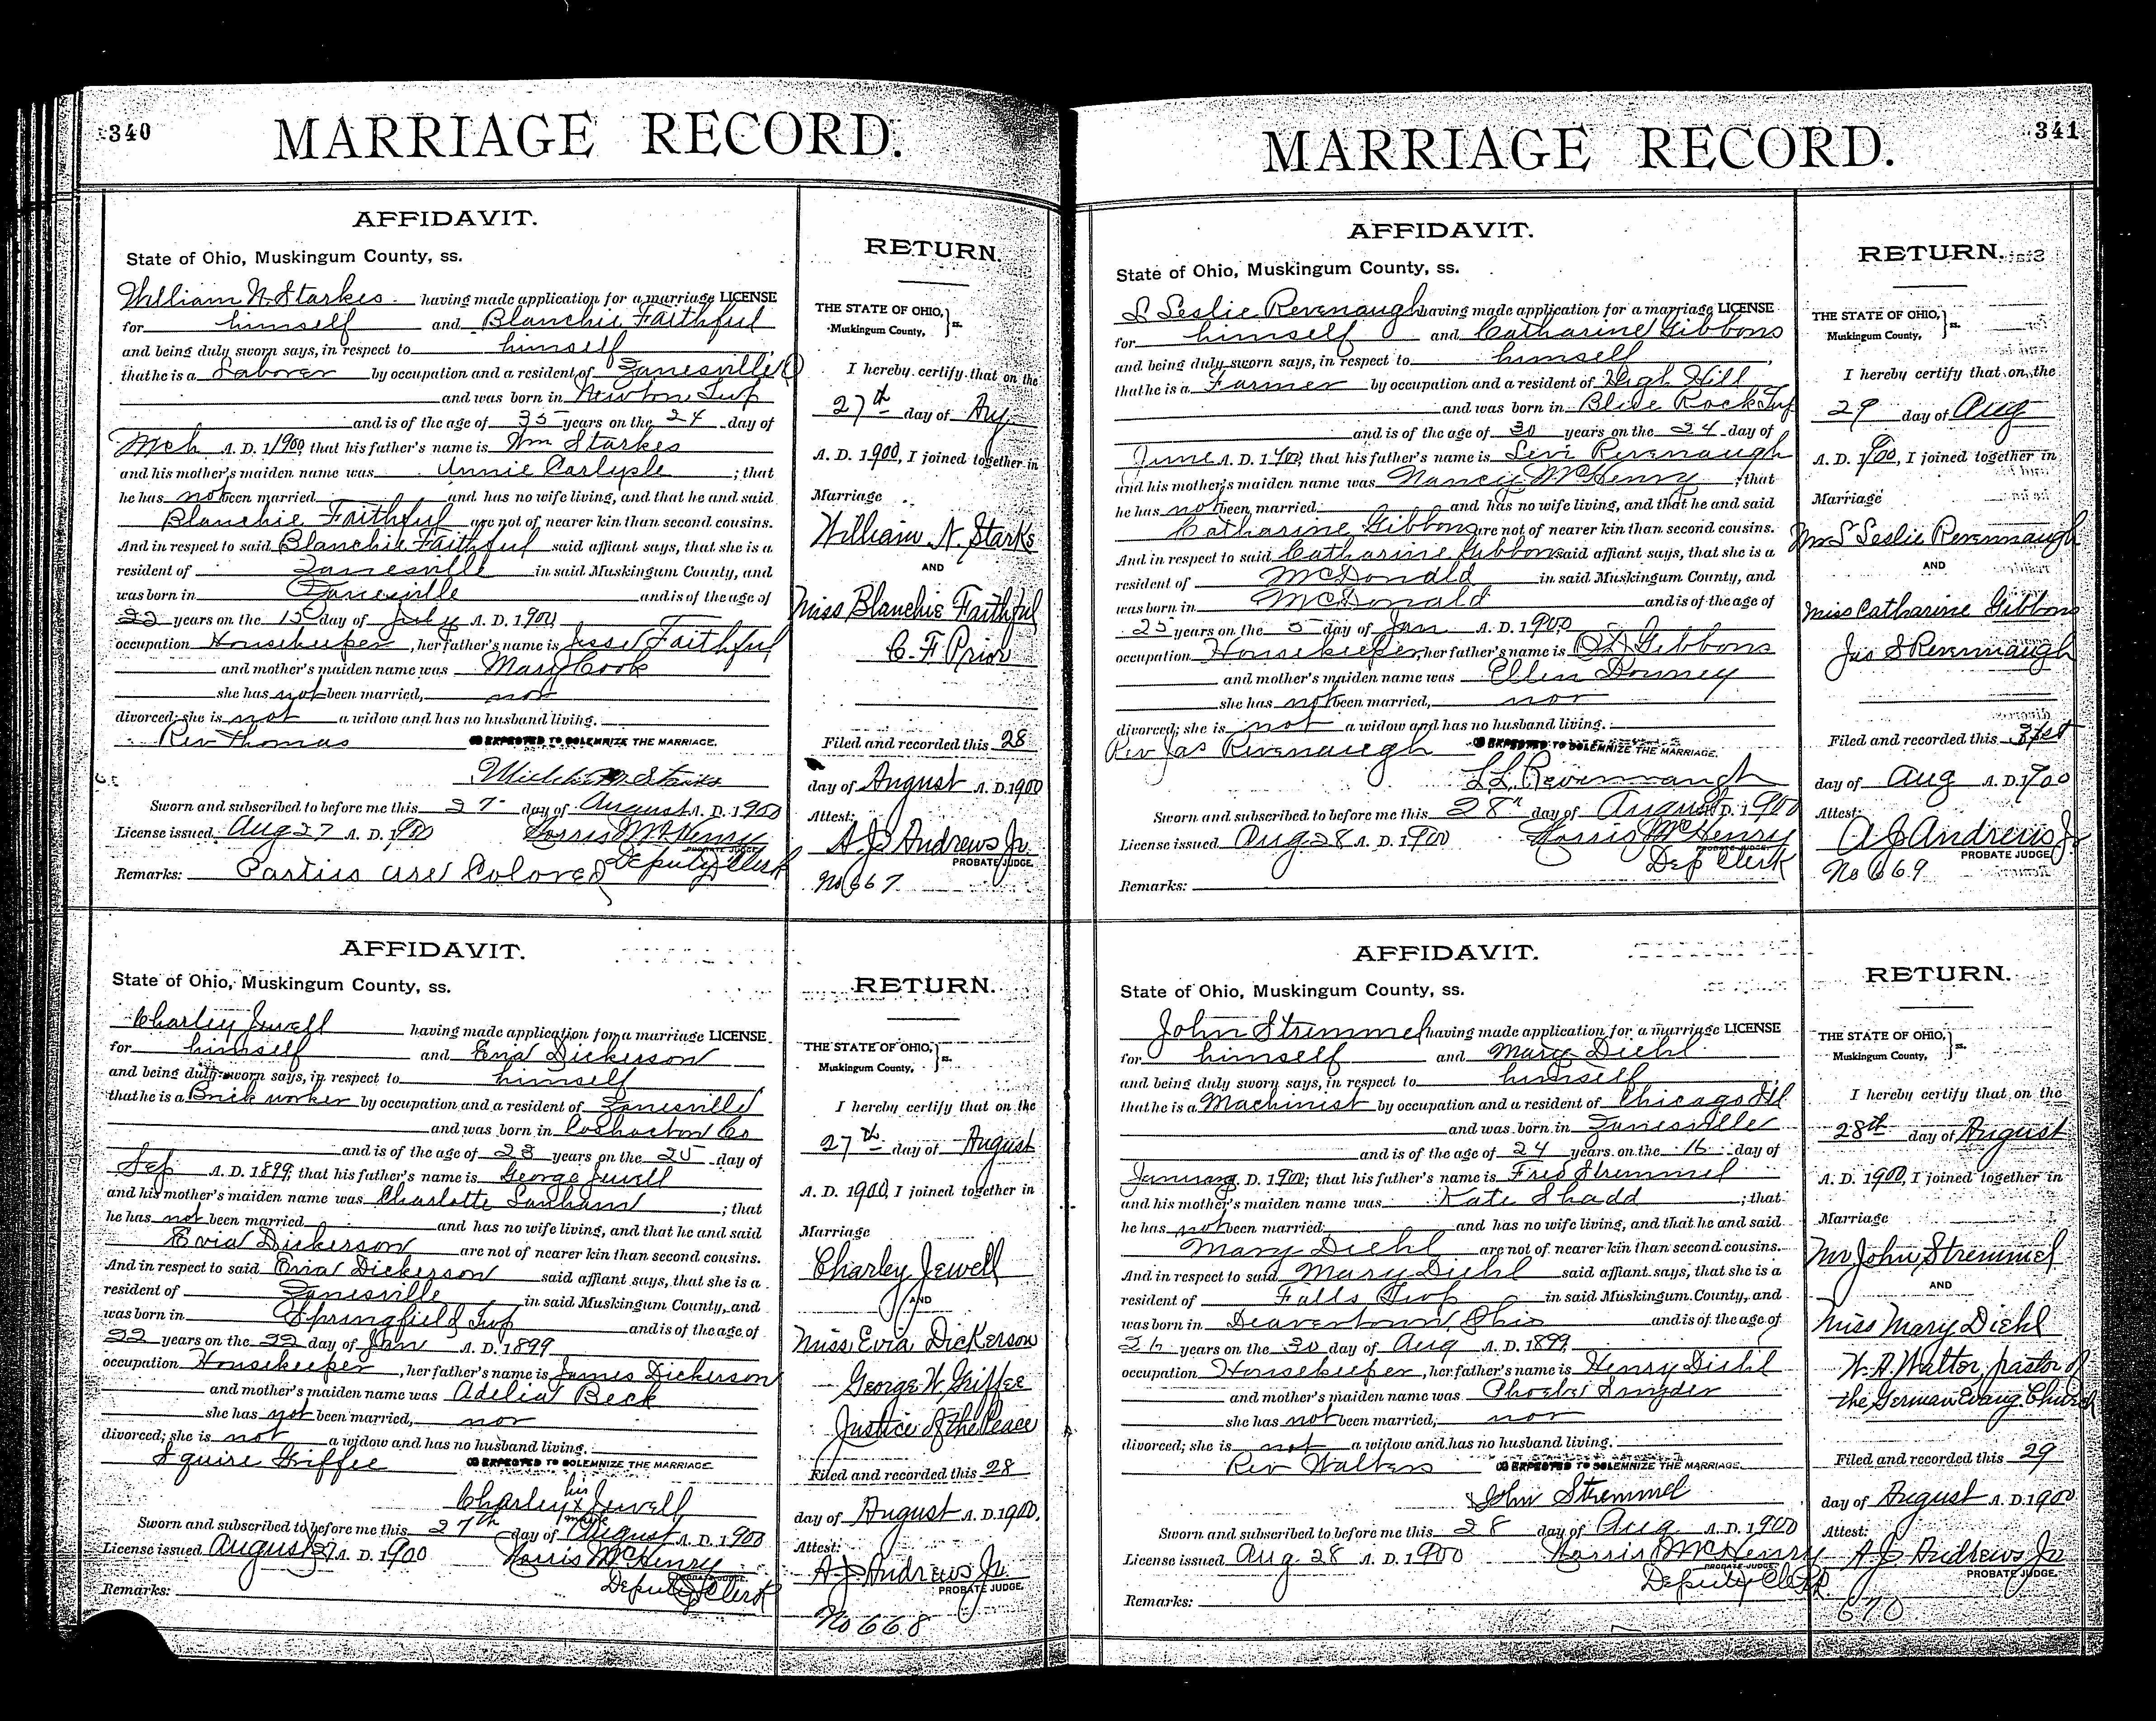 340
MARRIAGE RECORD.
AFFIDAVIT.
State of Ohio, Muskingum County, ss.
William N. Starkes having made application for a marriage LICENSE
for himself and Blanchie Faithful
and being duly sworn says, in respect to himself
that he is a Laborer by occupation and a resident of Zanesville O
and was born in Newton Twp
and is of the age of 35 years on the 24 day of
Mch A. D. 1900, that his father's name is Wm Starkes
and his mother's maiden name was Annie Carlysle ; that
he has not been married and has no wife living, and that he and said
Blanchie Faithful are not of nearer kin than second cousins.
And in respect to said Blanchie Faithful said affiant says, that she is a
resident of Zanesville in said Muskingum County, and
was born in Zanesville and is of the age of
22 years on the 15 day of July A. D. 1900,
occupation Housekeeper, her father's name is Jesse Faithful
and mother's maiden name was Mary Cook
she has not been married, nor
divorced; she is not a widow and has no husband living.
Rev Thomas EXPECTED TO SOLEMNIZE THE MARRIAGE.
Starks
Sworn and subscribed to before me this 27 day of August A. D. 1900
License issued Aug 27 A. D. 1900 Norris McHenry
PROBATE JUDGE.
Deputy Clerk
Remarks: Parties are Colored
RETURN.
THE STATE OF OHIO, Muskingum County, } ss.
I hereby certify that on the
27th day of Aug
A. D. 1900, I joined together in
Marriage
William N. Starks
AND
Miss Blanchie Faithful
C. F. Prior
Filed and recorded this 28
day of August A. D. 1900
Attest:
A J Andrews Jr.
PROBATE JUDGE.
No 667
AFFIDAVIT.
State of Ohio, Muskingum County, ss.
Charley Jewell having made application for a marriage LICENSE
for himself and Evia Dickerson
and being duly sworn says, in respect to himself
that he is a Brick worker by occupation and a resident of Zanesville
and was born in Coshocton Co
and is of the age of 23 years on the 25 day of
Sep A. D. 1899, that his father's name is George Jewell
and his mother's maiden name was Charlotte Lanham ; that
he has not been married and has no wife living, and that he and said
Evia Dickerson are not of nearer kin than second cousins.
And in respect to said Evia Dickerson said affiant says, that she is a
resident of Zanesville in said Muskingum County, and
was born in Springfield Twp and is of the age of
22 years on the 22 day of Jan A. D. 1899
occupation Housekeeper, her father's name is James Dickerson
and mother's maiden name was Adelia Beck
she has not been married, nor
divorced; she is not a widow and has no husband living.
Squire Griffee EXPECTED TO SOLEMNIZE THE MARRIAGE.
his
Charley x Jewell
mark
Sworn and subscribed to before me this 27th day of August A. D. 1900
License issued August 27 A. D. 1900 Norris McHenry
PROBATE JUDGE.
Deputy Clerk
Remarks:
RETURN.
THE STATE OF OHIO, Muskingum County, } ss.
I hereby certify that on the
27th day of August
A. D. 1900, I joined together in
Marriage
Charley Jewell
AND
Miss Evia Dickerson
George W. Griffee
Justice of the Peace
Filed and recorded this 28
day of August A. D. 1900.
Attest:
A J Andrews Jr.
PROBATE JUDGE.
No 668
341
MARRIAGE RECORD.
AFFIDAVIT.
State of Ohio, Muskingum County, ss.
S Leslie Revenaugh having made application for a marriage LICENSE
for himself and Catharine Gibbons
and being duly sworn says, in respect to himself,
that he is a Farmer by occupation and a resident of High Hill
and was born in Blue Rock Twp
and is of the age of 30 years on the 24 day of
June A. D. 1900, that his father's name is Levi Revenaugh
and his mother's maiden name was Nancy McHenry ; that
he has not been married and has no wife living, and that he and said
Catharine Gibbons are not of nearer kin than second cousins.
And in respect to said Catharine Gibbons said affiant says, that she is a
resident of McDonald in said Muskingum County, and
was born in McDonald and is of the age of
25 years on the 5 day of Jan A. D. 1900
occupation Housekeeper, her father's name is Gibbons
and mother's maiden name was Ellen Downey
she has not been married, nor
divorced; she is not a widow and has no husband living.
Rev Jas Revenaugh EXPECTED TO SOLEMNIZE THE MARRIAGE.
Revennaugh
Sworn and subscribed to before me this 28th day of August A. D. 1900
License issued Aug 28 A. D. 1900 Norris McHenry
PROBATE JUDGE.
Dep Clerk
Remarks:
RETURN.
THE STATE OF OHIO, Muskingum County, } ss.
I hereby certify that on the
29 day of Aug
A. D. 1900, I joined together in
Marriage
Mr S Leslie Revennaugh
AND
Miss Catharine Gibbons
Jas S Revennaugh
Filed and recorded this 31st
day of Aug A. D. 1900
Attest:
A J Andrews Jr
PROBATE JUDGE.
No 669
AFFIDAVIT.
State of Ohio, Muskingum County, ss.
John Stremmel having made application for a marriage LICENSE
for himself and Mary Diehl
and being duly sworn says, in respect to himself ;
that he is a Machinist by occupation and a resident of Chicago Ill
and was born in Zanesville
and is of the age of 24 years on the 16 day of
January A. D. 1900; that his father's name is Fred Stremmel
and his mother's maiden name was Kate Shadd ; that
he has not been married and has no wife living, and that he and said
Mary Diehl are not of nearer kin than second cousins.
And in respect to said Mary Diehl said affiant says, that she is a
resident of Falls Twp in said Muskingum County, and
was born in Deavertown, Ohio and is of the age of
26 years on the 30 day of Aug A. D. 1899,
occupation Housekeeper, her father's name is Henry Diehl
and mother's maiden name was Phoebe Snyder
she has not been married, nor
divorced; she is not a widow and has no husband living.
Rev Walters EXPECTED TO SOLEMNIZE THE MARRIAGE.
John Stremmel
Sworn and subscribed to before me this 28 day of Aug A. D. 1900
License issued Aug 28 A. D. 1900 Norris McHenry
PROBATE JUDGE.
Deputy Clerk
Remarks:
RETURN.
THE STATE OF OHIO, Muskingum County, } ss.
I hereby certify that on the
28th day of August
A. D. 1900, I joined together in
Marriage
Mr John Stremmel
AND
Miss Mary Diehl
W. A. Walter, pastor of
the German Evang. Church
Filed and recorded this 29
day of August A. D. 1900
Attest:
A J Andrews Jr
PROBATE JUDGE.
670